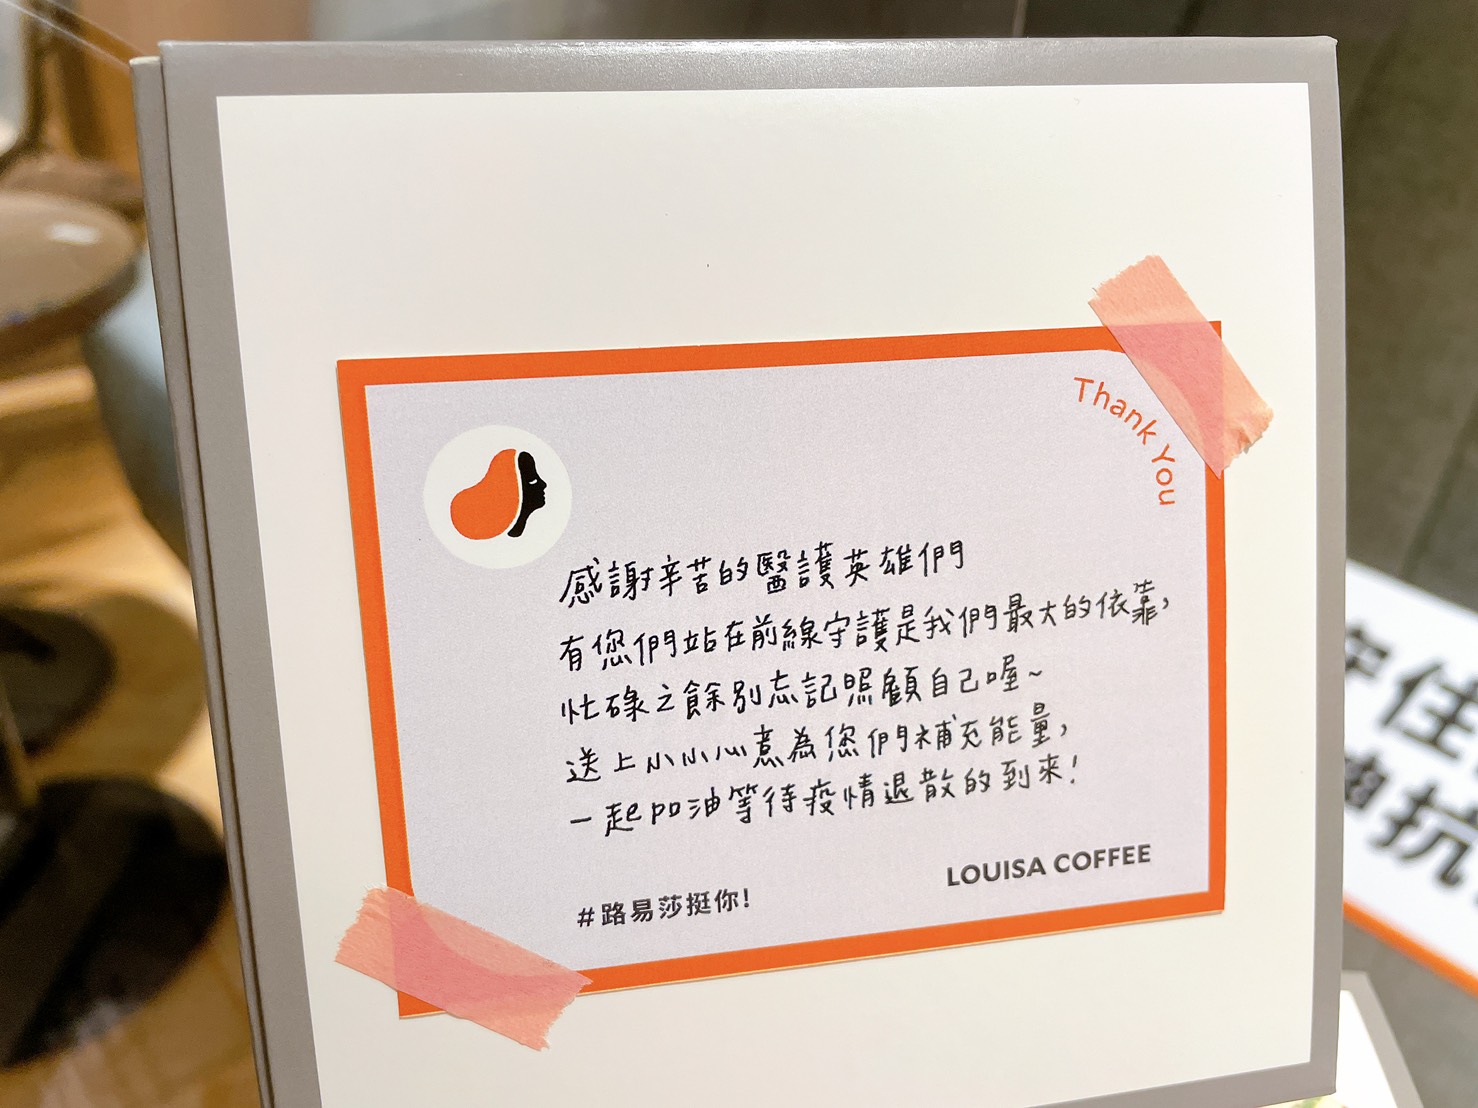 Thank You
感謝辛苦的醫護英雄們
有您們站在前線守護是我們最大的依靠,
忙碌之餘別忘記照顧自己喔~
送上小小心意為您們補充能量,
一起加油等待疫情退散的到來!
LOUISA COFFEE
#路易莎挺你!
住
抗